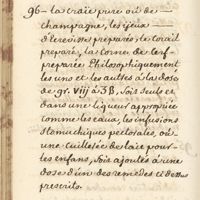 96 - la craïe pure où de
champagne, les ÿeux
d'Ecrevisse preparés, le corail
preparé, la Corne de Cerf
preparée Philosophiquement
les uns et les autres à la dose
de gr. Viij à 3B, Sois seuls et
dans une liqueur appropriée
comme les eaux, les infusions
stomachiques pectorales, où
une Cuillerée de lait pour
les enfans, Sois ajoutés à une
dose d'un des remedes ci dessus
prescrits.